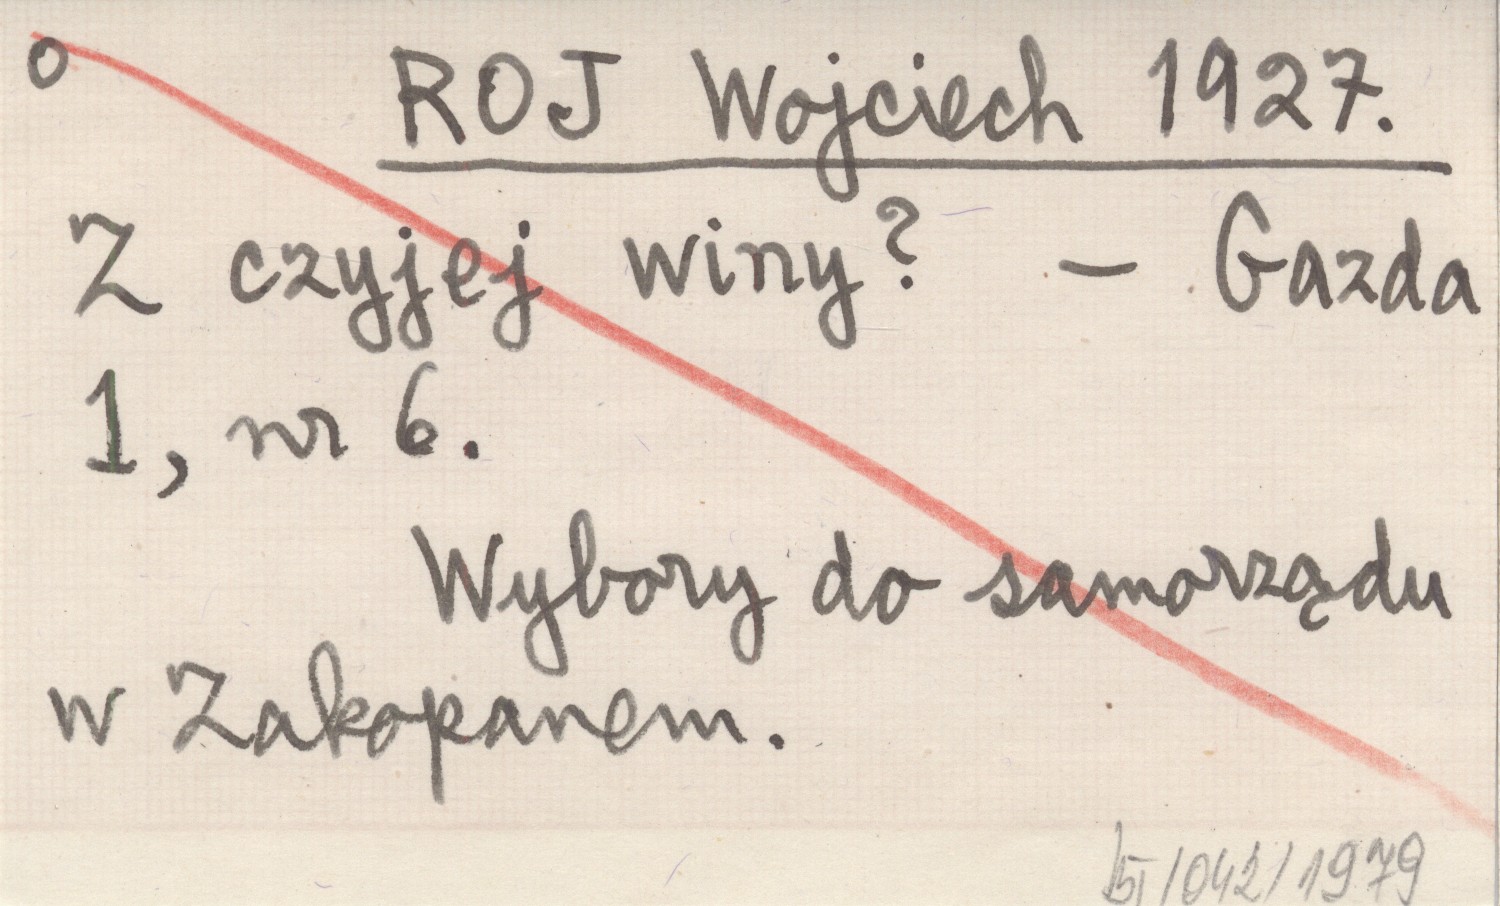 o ROJ Wojciech 1927.
Z czyjej winy? – Gazda
1, nr 6.
Wybory do samorządu
w Zakopanem.
/042/1979